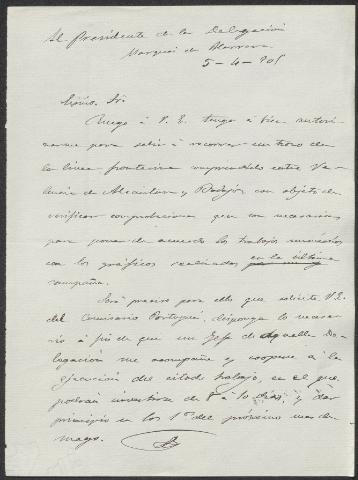 Al Presidente de la Delegación
Marques de
5-4-905
Excmo. Sr.
Ruego á V. E. tenga á bien autori-
zarme para salir á recorrer un trozo de
la linea fronteriza comprendido entre Va-
lencia de Alcántara y Badajoz con objeto de
verificar comprobaciones que son necesarias
para poner de acuerdo los trabajos
con los gráficos realizados en la última
campaña.
Será preciso para ello que solicite V.E.
del Comisario Portugués, disponga lo necesa-
rio á fin de que un Jefe de aquella De-
legación me acompañe y coopere á la
ejecución del citado trabajo, en el que
podrán invertirse de 8 á 10 dias, y dar
principio en los 1os del próximo mes de
mayo.